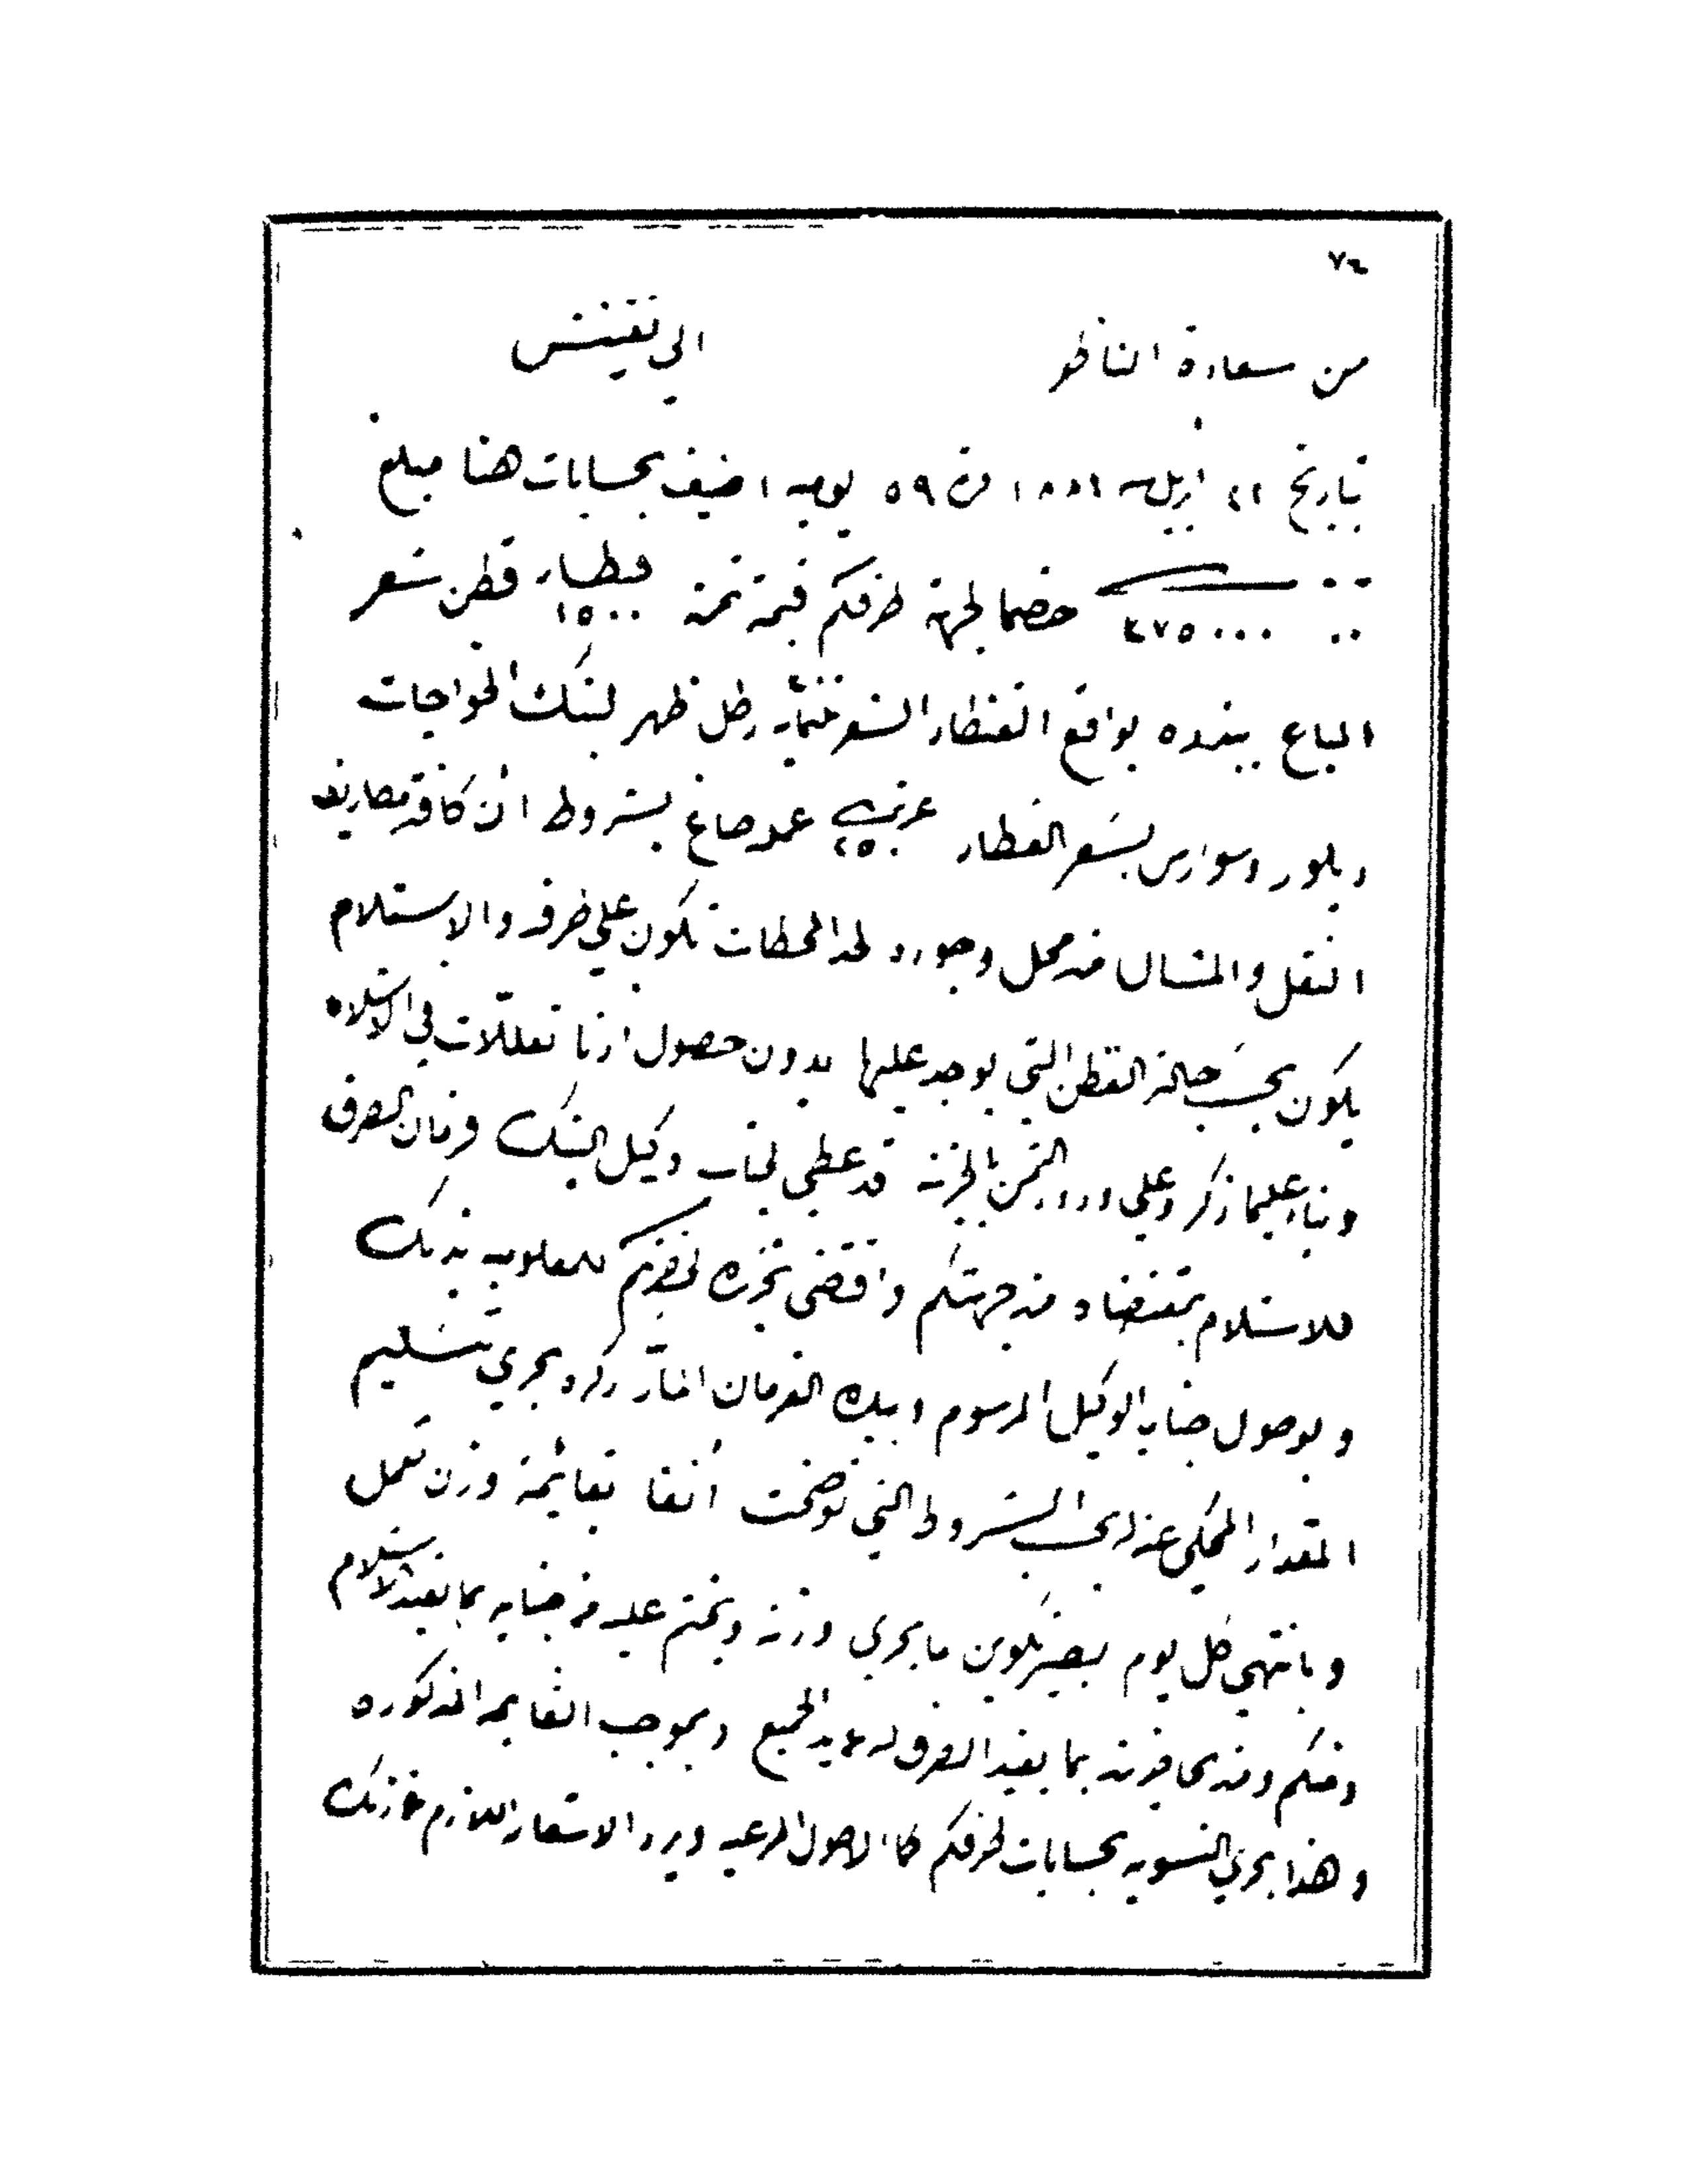 ٧٤
من سعادة الناظر الي تفتيش
بتاريخ ٢١ ابريل سنة ١٨٨٦ نمرة ٥٩ يوميه اضيف بحسابات هنا مبلغ
٣٧٥٠٠٠ خصما لجهة طرفكم قيمة ثمن قنطار ١٥٠٠ قطن شعر
المباع ببذره بواقع القنطار الشعر ثلثمايه رطل ظهر لبنك الخواجات
وبلور وسوارس بسعر القنطار ٢٥٠ عمله صاغ بشروط ان كافة مصاريف
النقل والمشال من محل وجوده لحد المحطات تكون علي طرفه والاستلام
يكون بحسب حالة القطن التي يوجد عليها بدون حصول ادنا تعللات في الاستلام
وبناء عليما ذكر وعلي ورود الثمن بالخزنه قد عطي لجناب وكيل البنك فرمان الصرف
للاستلام بمقتضاه من جهتكم واقتضي تحرره لحضرتكم للمعلوميه بذلك
وبوصول جناب الوكيل المرسوم وبيده الفرمان المار ذكره يجري تسليم
المقدار المحكي عنه بحسب الشروط التي توضحت أنفا بقائمة وزن تعمل
وبانتهي كل يوم يصير تكوين ما يجري وزنه ويختم عليه من جنابه بما يفيد الاستلام
ومنكم ومن بما يفيد الصرف الجميع وبموجب القايمه المذكوره
وهذا يجري التسويه بحسابات طرفكم كالاصول المرعيه ويرد الاشعار اللازم عن ذلك